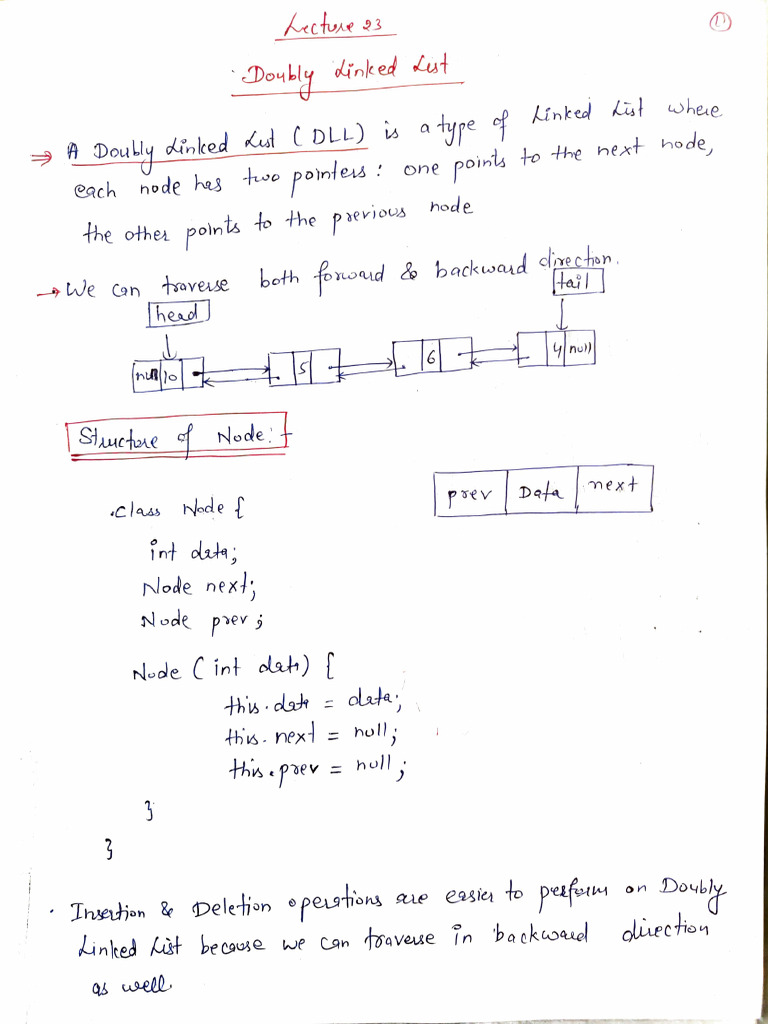 Lecture 23
11
Doubly Linked List
⇒ A Doubly Linked List (DLL) is a type of Linked List where
each node has two pointers: one points to the next node,
the other points to the previous node
→ We can traverse both forward & backward direction.
head
tail
null 10
5
6
4 null
Structure of Node:-
prev Data next
class Node {
int data;
Node next;
Node prev;
Node (int data) {
this.data = data;
this.next = null;
this.prev = null;
}
}
· Insertion & Deletion operations are easier to perform on Doubly
Linked List because we can traverse in backward direction
as well.